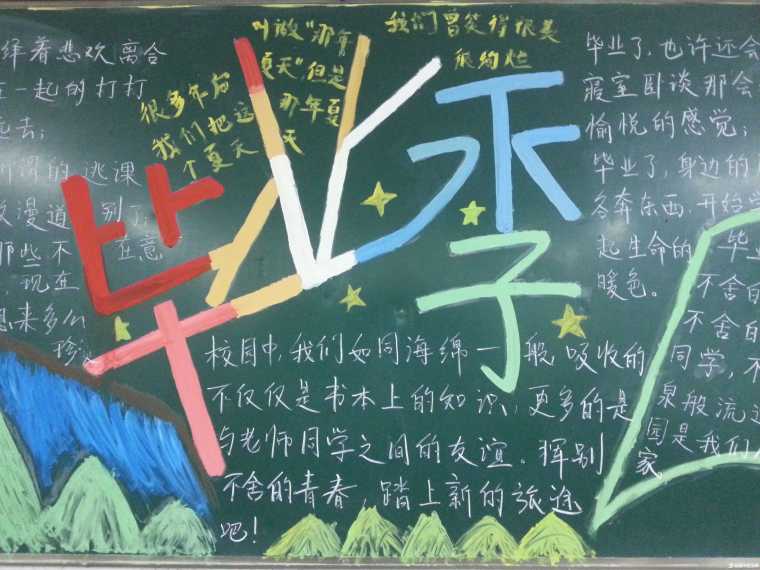 绎着悲欢离合
在一起的打打
逃课
漫道 别了
那些不 在意
现在
想来多么
珍
很多年后
我们把这
个夏天
叫做“那年
夏天”,但是
那年夏
天
我们曾笑得很美
很绚烂
毕业季
毕业了,也许还会
寝室卧谈那会
愉悦的感觉;
毕业了,身边的
各奔东西,开始
起生命的 毕业
暖色。
不舍的
不舍的
同学,不
泉般流
园是我们
家
校园中,我们如同海绵一般吸收的
不仅仅是书本上的知识,更多的是
与老师同学之间的友谊。挥别
不舍的青春,踏上新的旅途
吧!